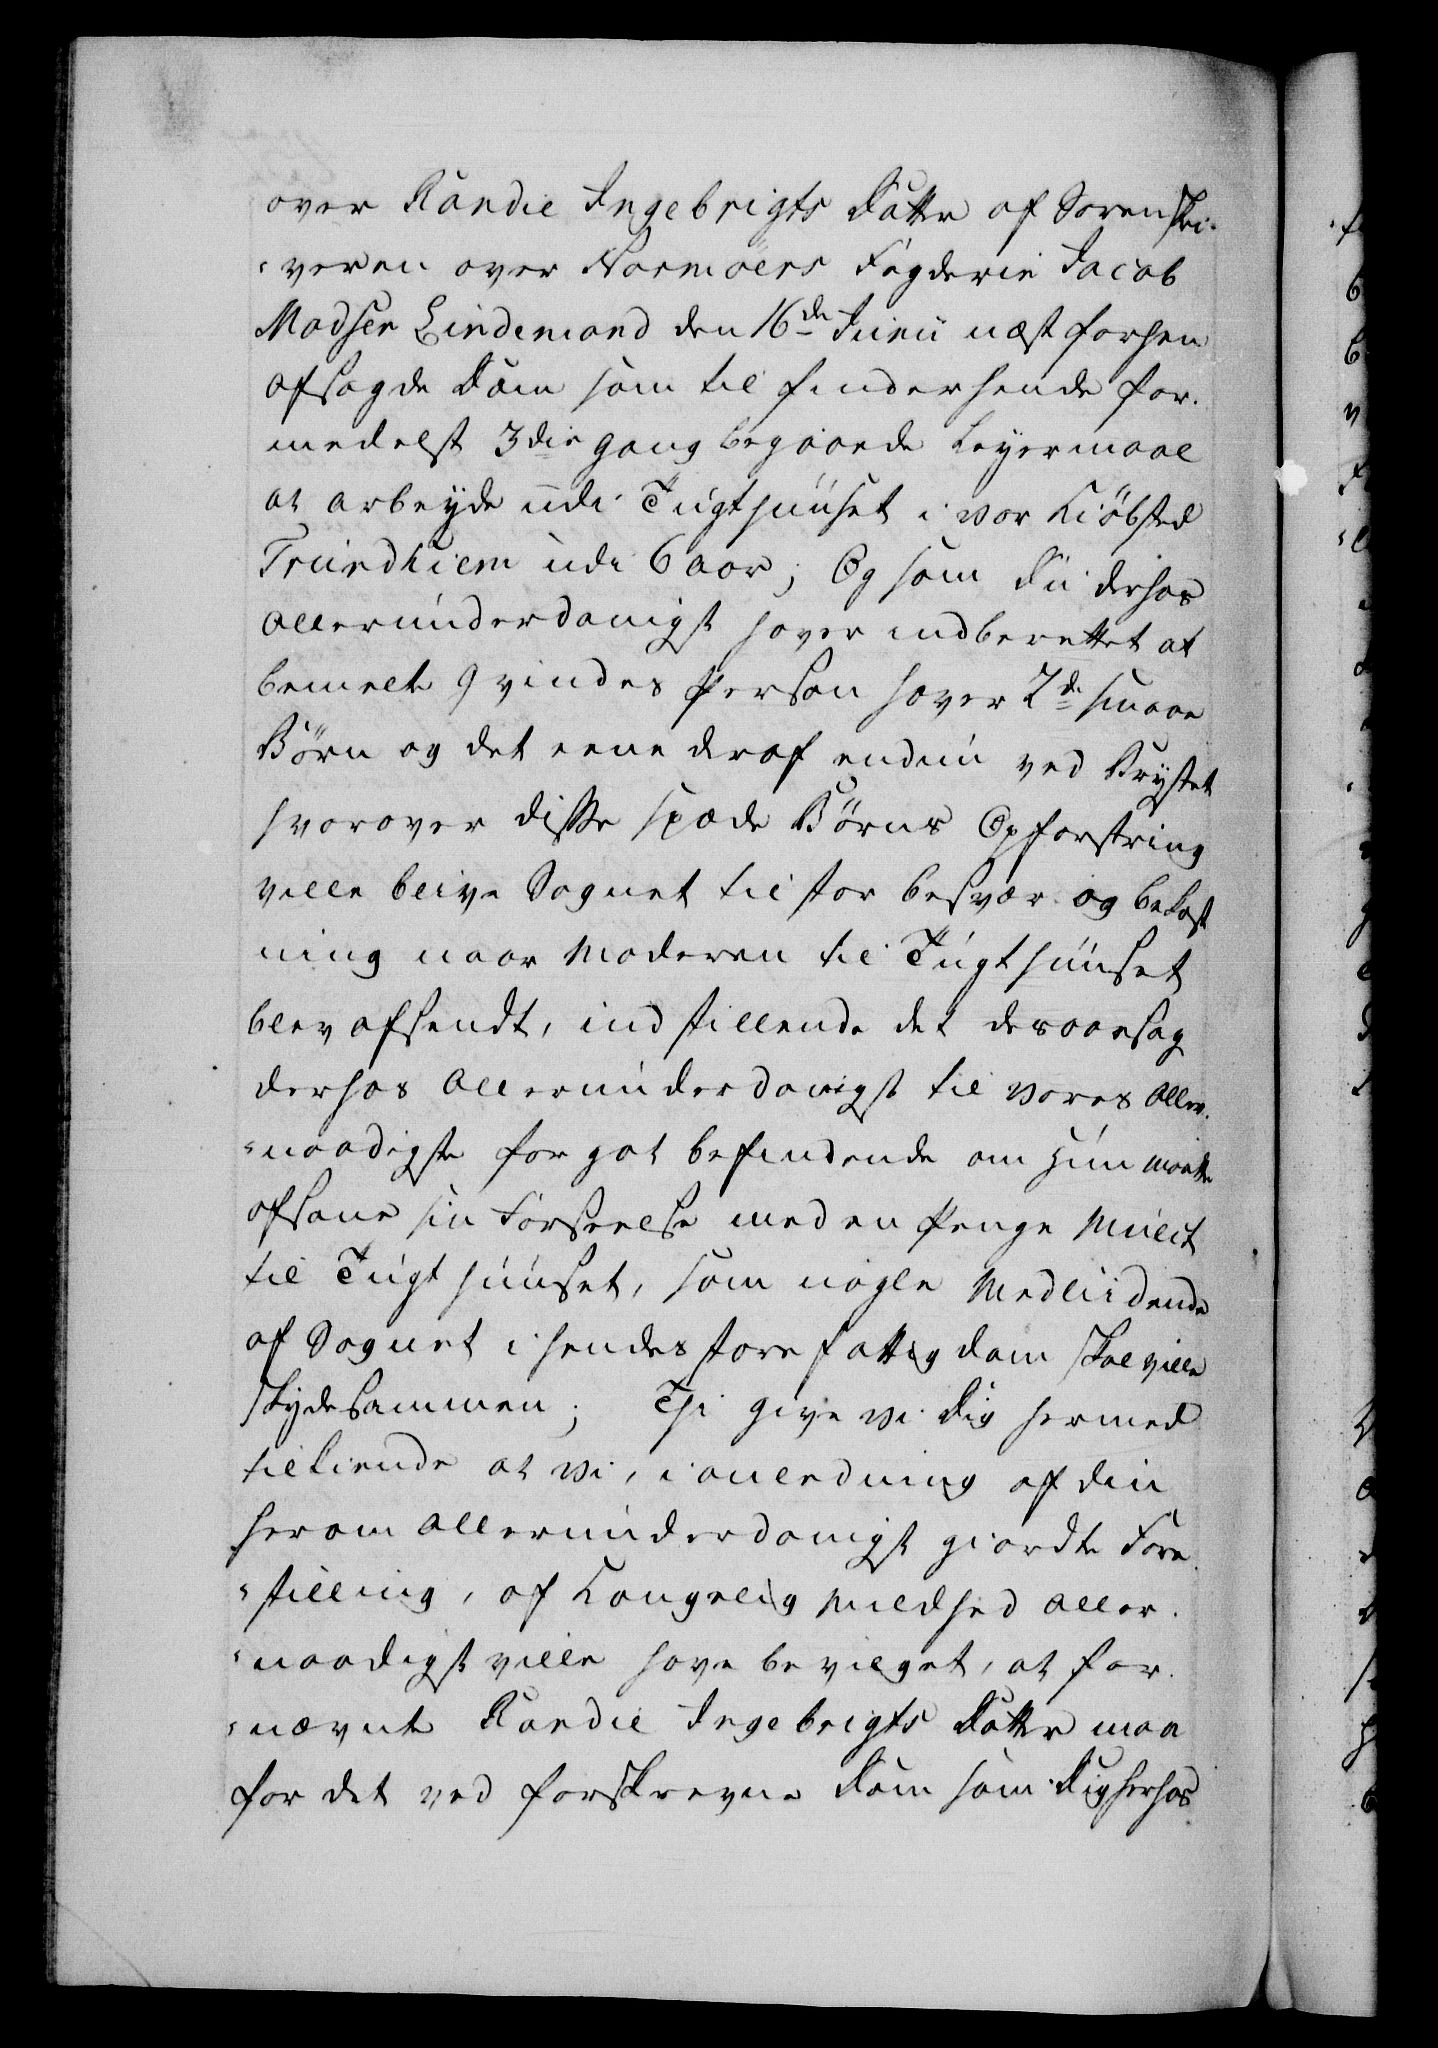 over Randie Ingebrigts Datter af Sorenskri-
-veren over Normöers Fogderie Jacob
Madsen Lindemand den 16de Junii næst forhen
afsagde Dom som til finder hende for-
medelst 3die gang begaaende Leyermaal
at arbeyde udi Tugthuuset i vor Kiöbsted
Trundhiem udi 6 aar; Og som du derhos
allerunderdanigst haver indberettet at
bemelte Qvindes Person haver 2de smaae
Börn og det eene deraf endnu ved Brystet
hvorover disse spæde Börns Opfostring
ville blive Sognet til stor besvær og bekost
ning naar Moderen til Tugthuuset
blev afsendt, indstillende det desaarsag
derhos allerunderdanigst til vores aller-
-naadigste for got befindende om hun maatte
afsone sin Forseelse med en Penge Mulct
til Tugthuuset, som nogle Medliidende
af Sognet i hendes store fattigdom skal ville
skyde sammen; Thi give vi dig hermed
tilkiende at vi, i anledning af din
herom allerunderdanigst giordte Fore
-stilling, af Kongelig Mildhed aller-
-naadigst ville have bevilget, at for-
-nævnte Randie Ingebrigts Datter maa
for det ved forskrevne Dom som dig herhos